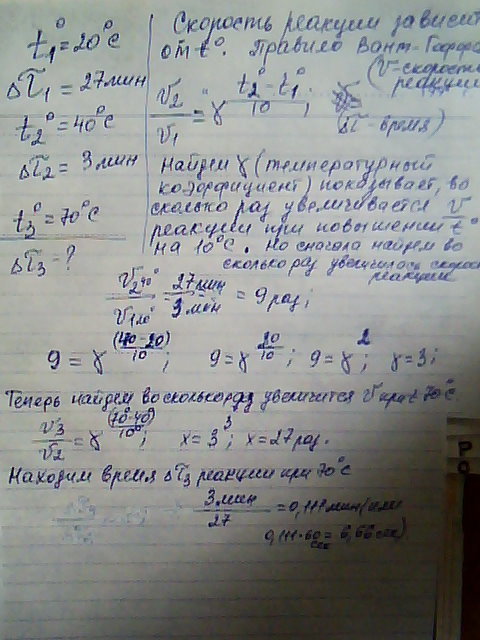 t₁° = 20°C
Δτ₁ = 27 мин
t₂° = 40°C
Δτ₂ = 3 мин
t₃° = 70°C
Δτ₃ = ?
Скорость реакции зависит
от t°. Правило Вант-Гоффа
(V-скорость
реакции
V₂/V₁ = γ^((t₂°-t₁°)/10) ;
(Δτ-время)
Найдем γ (температурный
коэффициент) показывает, во
сколько раз увеличивается V
реакции при повышении t°
на 10°C. Но сначала найдем во
сколько раз увеличилась скорость
реакции
V₂40°/V₁20° = 27 мин/3 мин = 9 раз;
9 = γ^((40-20)/10) ; 9 = γ^(20/10) ; 9 = γ² ; γ = 3;
Теперь найдем во сколько раз увеличится V при t 70°C
V₃/V₂ = γ^((70-40)/10) ; x = 3³ ; x = 27 раз.
Находим время Δτ₃ реакции при 70°C
3 мин/27 = 0,111 мин (или
0,111·60 сек = 6,66 сек)